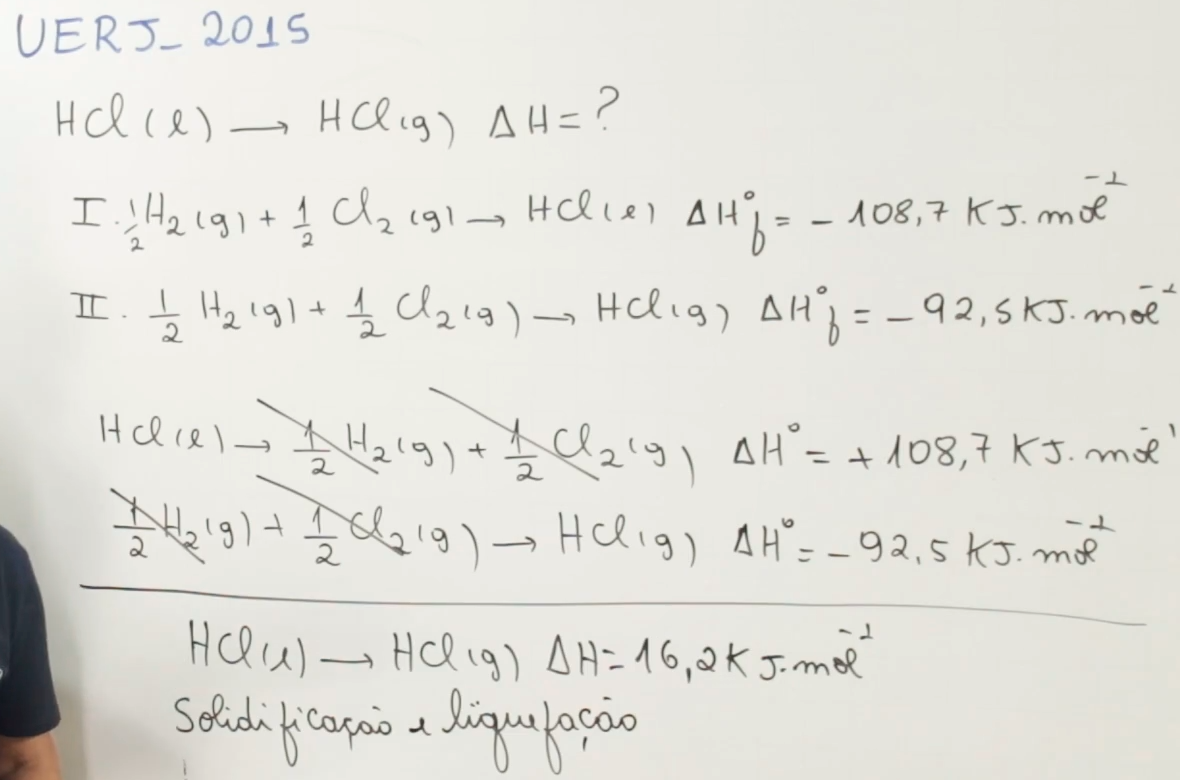 UERJ_ 2015
HCl(l) → HCl(g) ΔH=?
I. 1/2 H₂(g) + 1/2 Cl₂(g) → HCl(l) ΔH°f = - 108,7 KJ. mol⁻¹
II. 1/2 H₂(g) + 1/2 Cl₂(g) → HCl(g) ΔH°f = - 92,5 KJ. mol⁻¹
HCl(l) → 1/2 H₂(g) + 1/2 Cl₂(g) ΔH° = + 108,7 KJ. mol⁻¹
1/2 H₂(g) + 1/2 Cl₂(g) → HCl(g) ΔH° = - 92,5 KJ. mol⁻¹
HCl(l) → HCl(g) ΔH = 16,2 KJ. mol⁻¹
Solidificação e liquefação